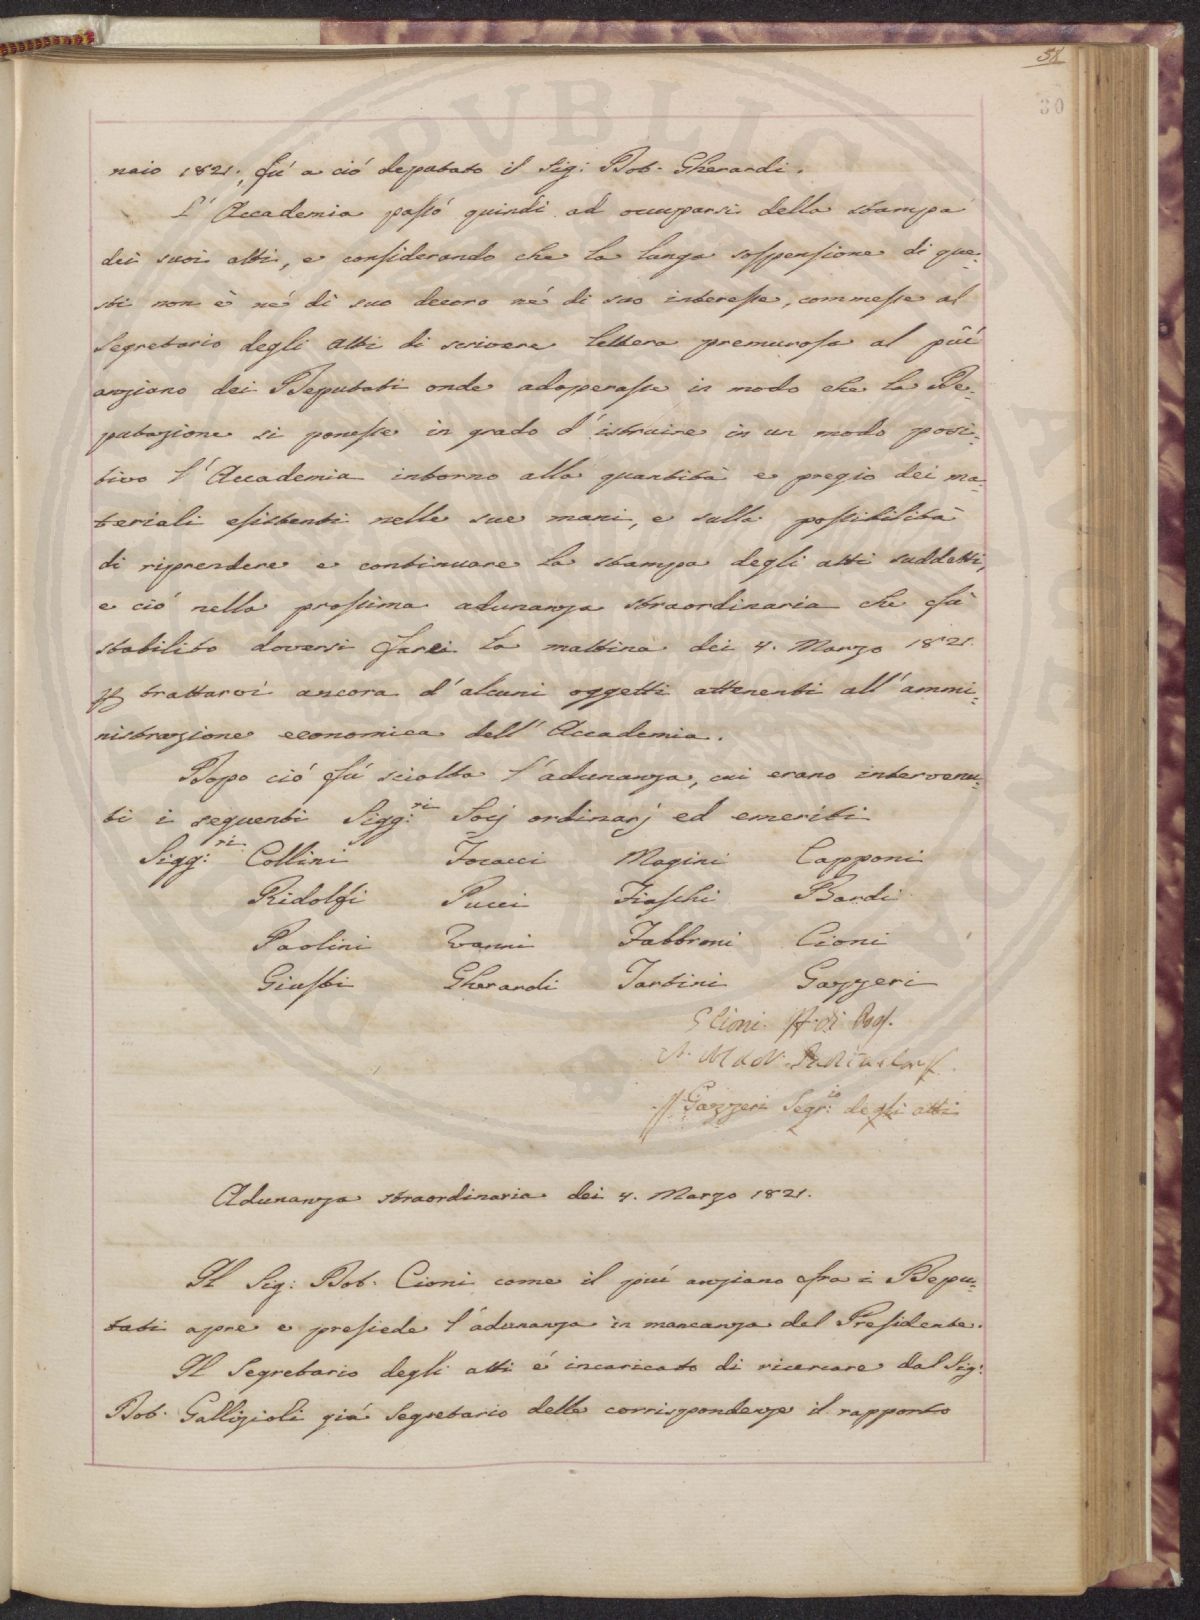 58
30
naio 1821., fú a ció deputato il Sig: Dot. Gherardi.
L'Accademia passó quindi ad occuparsi della stampa
dei suoi atti, e considerando che la lunga sospensione di que=
sti non è né di suo decoro né di suo interesse, commesse al
Segretario degli Atti di scrivere lettera premurosa al piú
anziano dei Deputati onde adoperasse in modo che la De=
putazione si ponesse in grado d'istruire in un modo posi=
tivo l'Accademia intorno alla quantità e pregio dei ma=
teriali esistenti nelle sue mani, e sulla possibilità
di riprendere e continuare la stampa degli atti suddetti,
e ció nella prossima adunanza straordinaria che fú
stabilito doversi farsi la mattina dei 4. Marzo 1821.
trattarvi ancora d'alcuni oggetti attenenti all'ammi=
nistrazione economica dell'Accademia.
Dopo ció fú sciolta l'adunanza, cui erano intervenu=
ti i seguenti Sigg:ri Socj ordinarj ed emeriti
Sigg:ri Collini Focacci Magini Capponi
Ridolfi Pucci Fiaschi Bardi
Paolini Vanni Fabbroni Cioni
Giusti Gherardi Tartini Gazzeri
G Cioni
Gazzeri Segr:io degli atti
Adunanza straordinaria dei 4. Marzo 1821.
Il Sig: Dot. Cioni come il piú anziano fra i Depu=
tati apre e presiede l'adunanza in mancanza del Presidente.
Il Segretario degli atti é incaricato di ricercare dal Sig:
Dot. Gallizioli giá Segretario delle corrispondenze il rapporto